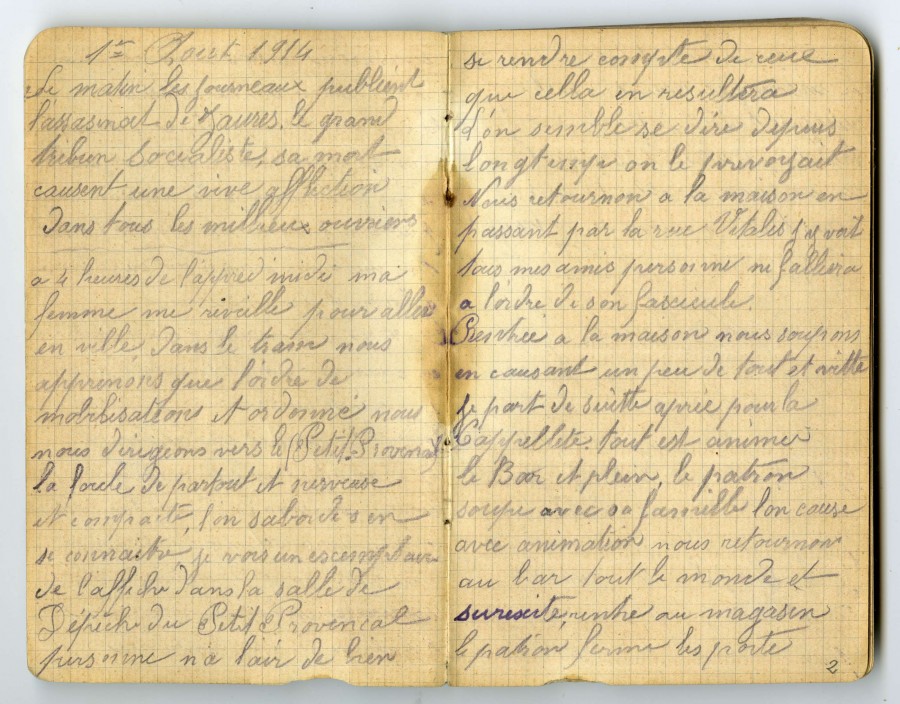 1er Aout 1914
Le matin les journeaux publient
l'assasinat de Jaures, le grand
tribun Socialiste, sa mort
causent une vive affliction
dans tous les millieux ouvriers
a 4 heures de l'apred midi ma
femme me reveille pour aller
en ville, dans le tram nous
apprenons que l'ordre de
mobilisations et ordonné nous
nous dirigeons vers le (Petit Provencal)
la foule de partout et nerveuse
et compacte, l'on saborde s en
se connaitre je vois un
de l'affiche dans la salle de
Dépeche du Petit Provencal
personne n'a l'air de bien
si rendre compte de ceue
que cella en resultera
L'on semble se dire depuis
longtemps on le prevoyait
Nous retournon a la maison en
passant par la rue Vitalis j'y voit
tous mes amis personne ne falliera
a l'ordre de son fascicule.
Rentree a la maison nous soupons
en causant un peu de tout et vitte
je part de suitte apree pour la
Cappellete tout est animer
le Bar et plein, le patron
soupe avec sa famille l'on cause
avec animation nous retournon
au bar tout le monde et
surexité, rentre au magasin
le patron ferme les porte
2